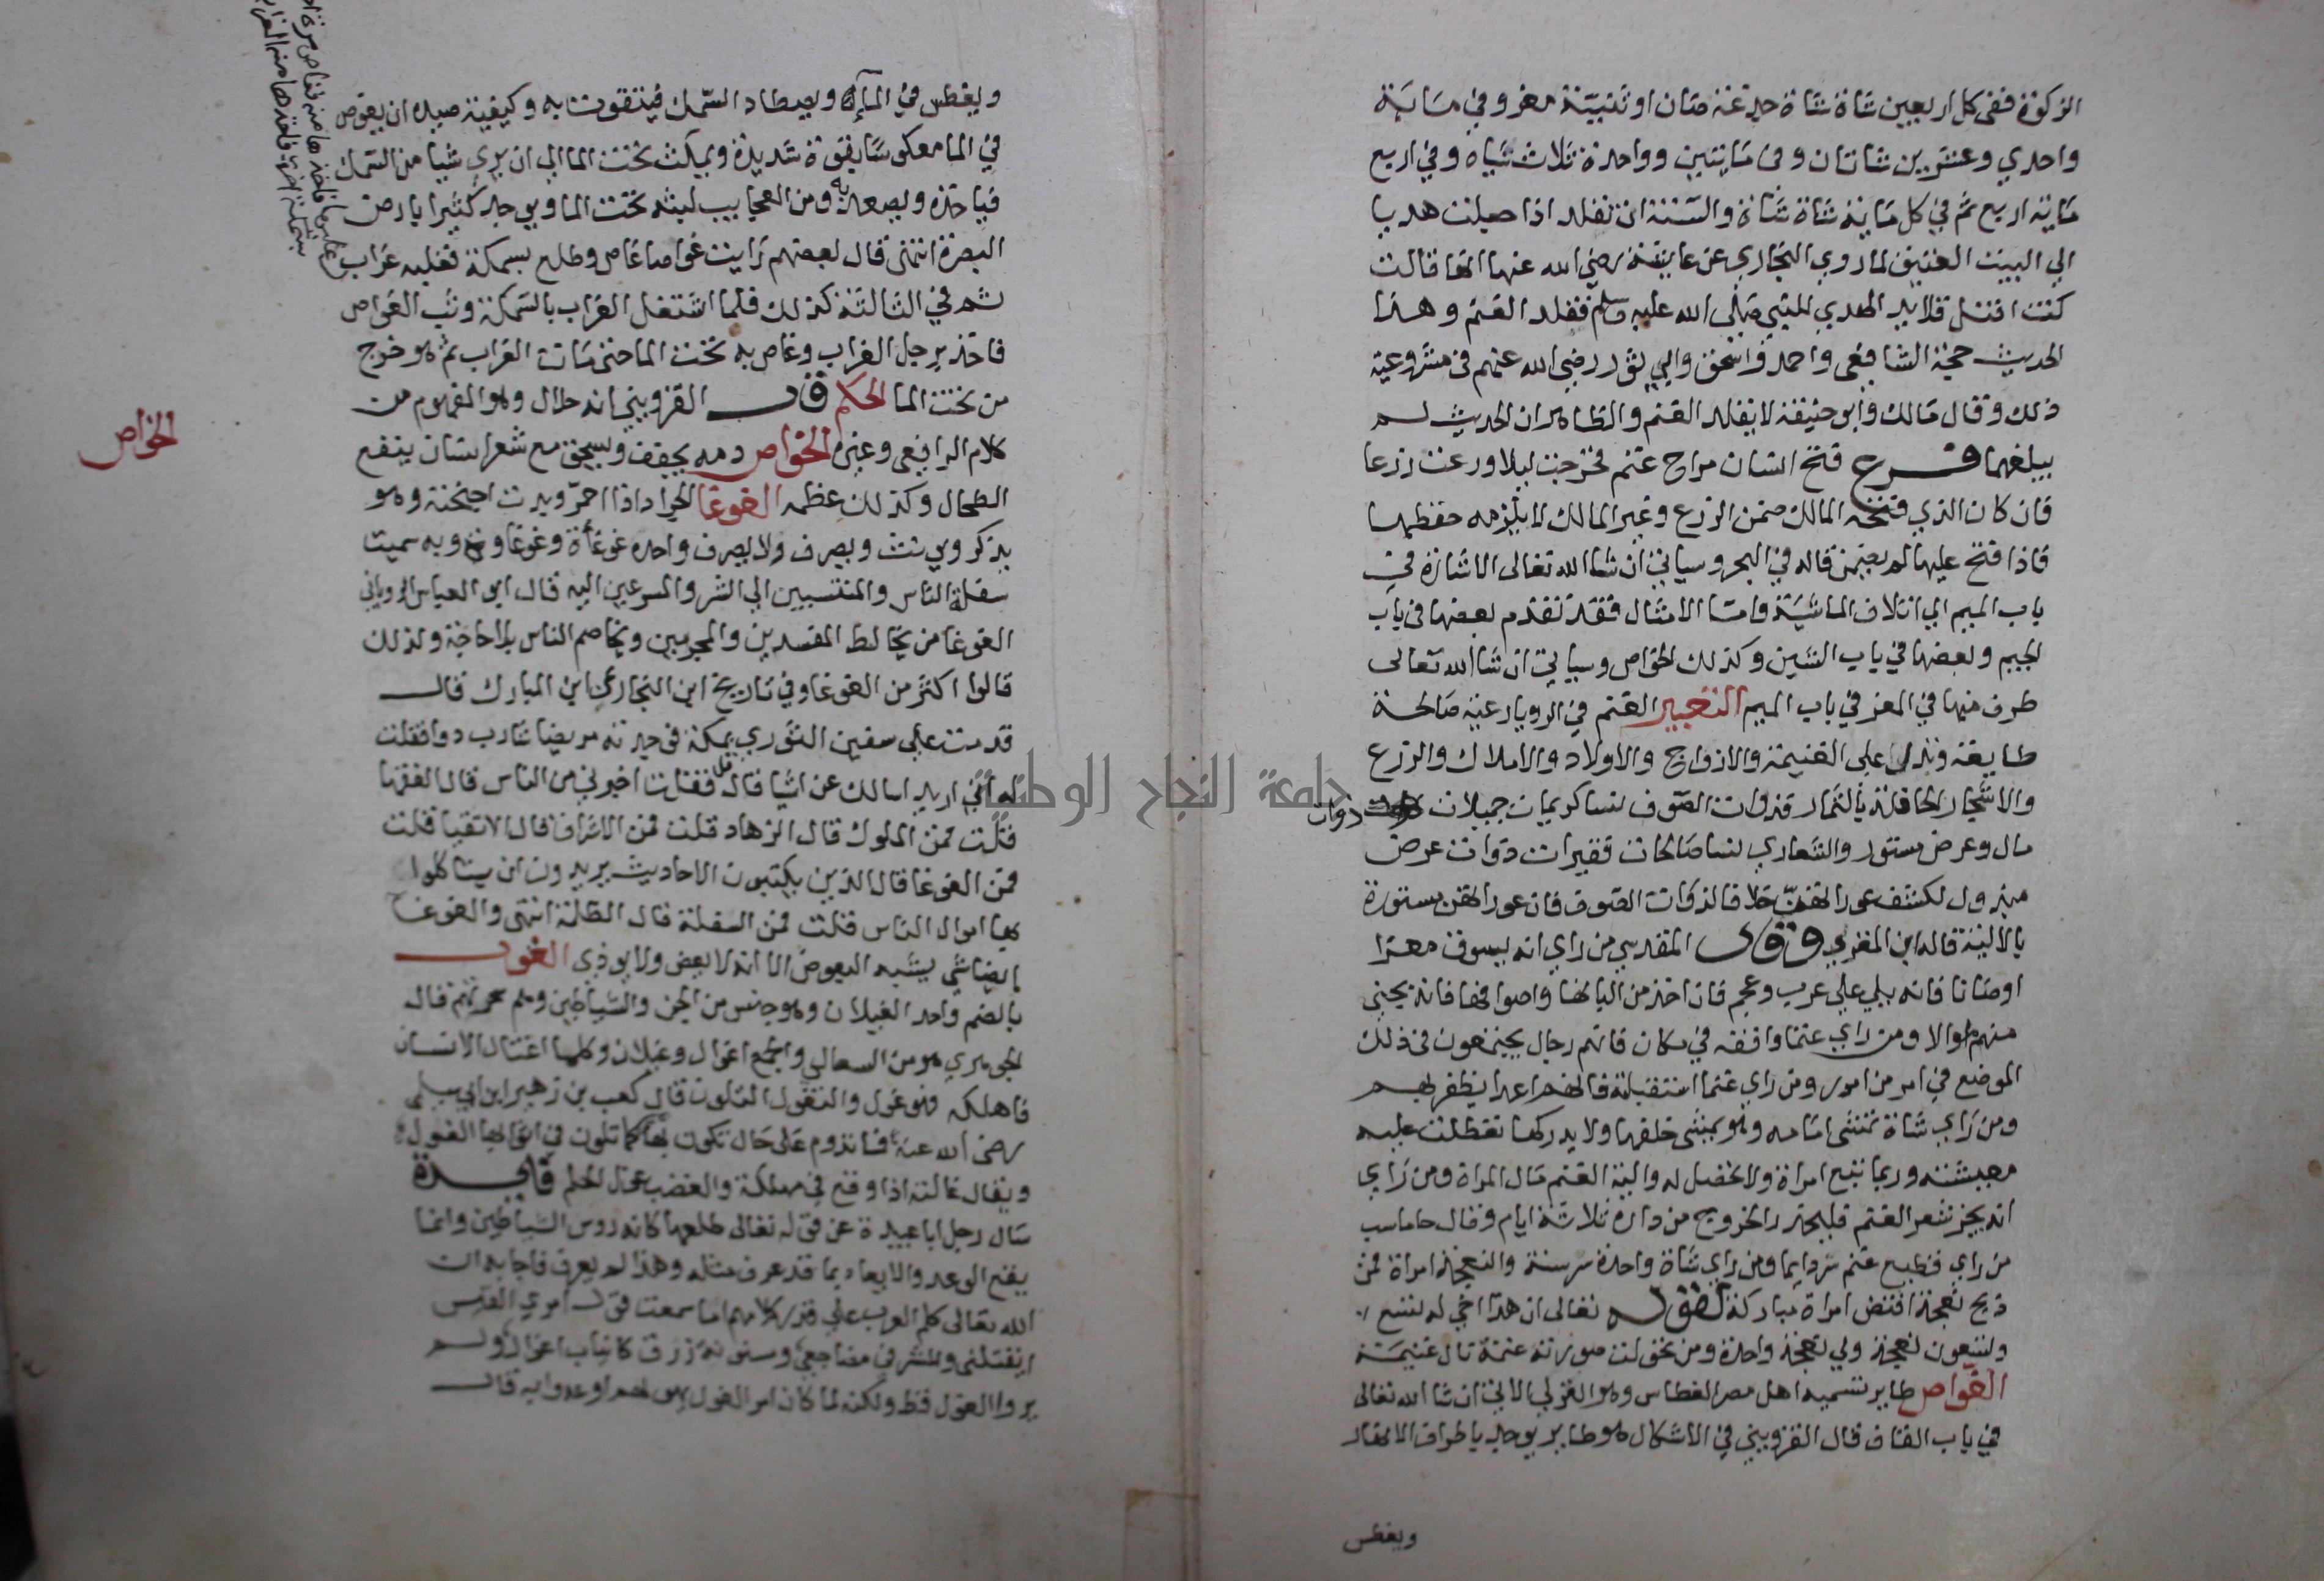 الزكوة ففى كل اربعين شاة شاة جذعة ضان او ثنيتة معز وفي مَاية
واحدي وعشرين شاتان وفى مَايتين وواحدة ثلاث شياه وفي اربع
مَاية اربع ثم في كل مَاية شاة شاة والسّنة ان تقلد اذا جعلت هديا
الي البيت العتيق لما روي البخاري عن عايشة رضي الله عنها انها قالت
كنت افتل قلايد الهدي للنبي صَلى الله عليه وسلم فقلد الغنم وهذا
الحديث حجة الشافعى واحمد واسحق وابي ثور رضى الله عنهم فى مشروعية
ذلك وقال مَالك وابو حنيفة لا يقلد الغنم والظاهر ان الحديث لم
يبلغهما فرع فتح انسان مراح غنم فخرجت ليلا ورعت زرعا
فان كان الذي فتحه المالك ضمن الزرع وغير المالك لا يلزمه حفظها
فاذا فتح عليها لم يضمن قاله في البحر وسياتي ان شا الله تعالى الاشارة في
باب الميم الي اتلاف الماشية وامّا الامثال فقد تقدم بعضها فى باب
الجيم وبعضها في باب الشين وكذلك الخواص وسياتي ان شا الله تعالى
طرف منها في المعز في باب الميم التعبير الغنم في الرويا رعية صَالحة
طايعة وتدل علي الغنيمة والازواج والاولاد والاملاك والزرع
والاشجار الحافلة بالثمار فذوات الصّوف نسا كريمات جميلات ذوات
مال وعرض مستور والشعاري نسا صَالحات فقيرات ذوات عرض
مبذول لكشف عوراتهنّ خلافا لذوات الصّوف فان عوراتهن مستورة
بالالية قاله ابن المقري وقال المقدسي من راي انه يسوق معزا
او ضانا فانه يلي علي عرب وعجم فان اخذ من البانها واصوافها فانه يجبى
منهم اموالا ومن راي غنما واقفة في مكان فانهم رجال يجتمعون فى ذلك
الموضع في امر من امور ومن راي غنما استقبلته فانهم اعدا يظفر بهم
ومن رَاي شاة تمشى امَامه وهو يمشى خلفها ولا يدركها تعطلت عليه
معيشته وربما تتبع امراة ولا تحصل له والية الغنم مَال المراة ومن رَاي
انه يجز شعر الغنم فليحذر الخروج من داره ثلاثة ايام وقال جاماسب
من راي قطيع غنم سر دايما ومن راي شاة واحدة سر سنة والنعجة امراة فمن
ذبح نعجة افتض امراة مباركة لقوله تعالى ان هذا اخي له تسع
وتسعون نعجة ولي نعجة واحدة ومن تحولت صورته غنمة نال غنيمَة
الغوّاص طاير تسميه اهل مصر الغطاس وهو القرلي الاتي ان شا الله تعالى
في باب القاف قال القزويني في الاشكال هو طاير يوجد باطراف الانهار
ويغطس
ويغطس في المآء ويصطاد السّمك فيتقوت به وكيفية صيده ان يغوص
في الما معكوسًا بقوة شديدة ويمكث تحت الما الي ان يري شيا من السّمك
فياخذه ويصعد به ومن العجايب لبثه تحت الما ويوجد كثيرا بارض
البصرة انتهى قال بعضهم رَايت غواصا غاص وطلع بسمكة فغلبه غراب
ثم في الثالثة كذلك فلما اشتغل الغراب بالسمكة وثب الغواص
فاخذ برجل الغراب وغاص به تحت الما حتى مَات الغراب ثم هو خرج
من تحت الما الحكم قال القزويني انه حلال وهو المفهوم من
كلام الرافعي وغيره الخواص دمه يجفف ويسحق مع شعر انسان ينفع
الطحال وكذلك عظمه الغوغا الجراد اذا احمرّ وبرت اجنحته وهو
يذكر ويونث ويصرف ولا يصرف واحده غوغأة وغوغا وبه سميت
سفلة الناس والمنتسبين الي الشر والمسرعين اليه قال ابو العباس الروياني
الغوغا من يخالط المفسدين والمجرمين ويخاصم الناس بلا حاجة ولذلك
قالوا اكثر من الغوغا وفي تاريخ ابن النجار عن ابن المبارك قال
قدمت علي سفين الثوري بمكة فى حيرته مريضا شارب دوا فقلت
له اني اريد اسالك عن اشيا قال قل فقلت اخبرني من الناس قال الفقها
قلت فمن الملوك قال الزهاد قلت فمن الاشراف قال الاتقيا قلت
فمن الغوغا قال الذين يكتبون الاحاديث يريدون ان يتاكلوا
بها اموال الناس قلت فمن السفلة قال الظلمة انتهى والغوغا
ايضا شي يشبه البعوض الا انه لا يعض ولا يوذي الغول
بالضم واحد الغيلان وهو جنس من الجن والشياطين وهم سحرتهم قال
الجوهري هو من السعالي والجمع اغوال وغيلان وكلما اغتال الانسان
فاهلكه فهو غول والتغول التلون قال كعب بن زهير ابن ابي سلمى
رضى الله عنه فما تدوم عَلى حَال تكون بها كما تلون في اثوابها الغول
ويقال غالته اذا وقع في مهلكة والغضب غول الحلم فايدة
سَال رجل ابا عبيدة عن قوله تعالى طلعها كانه روس الشياطين وانما
يقع الوعد والايعاد بما قد عرف مثله وهذا لم يعرف فاجابه ان
الله تعالى كلم العرب علي قدر كلامهم اما سمعت قول امري القيس
ايقتلنى والمشرفي مضاجعي ومسنونة زرق كانياب اغوال ولم
يروا الغول قط ولكنه لما كان امر الغول يهولهم اوعدوا به قال
الخواص
جامعة النجاح الوطنية